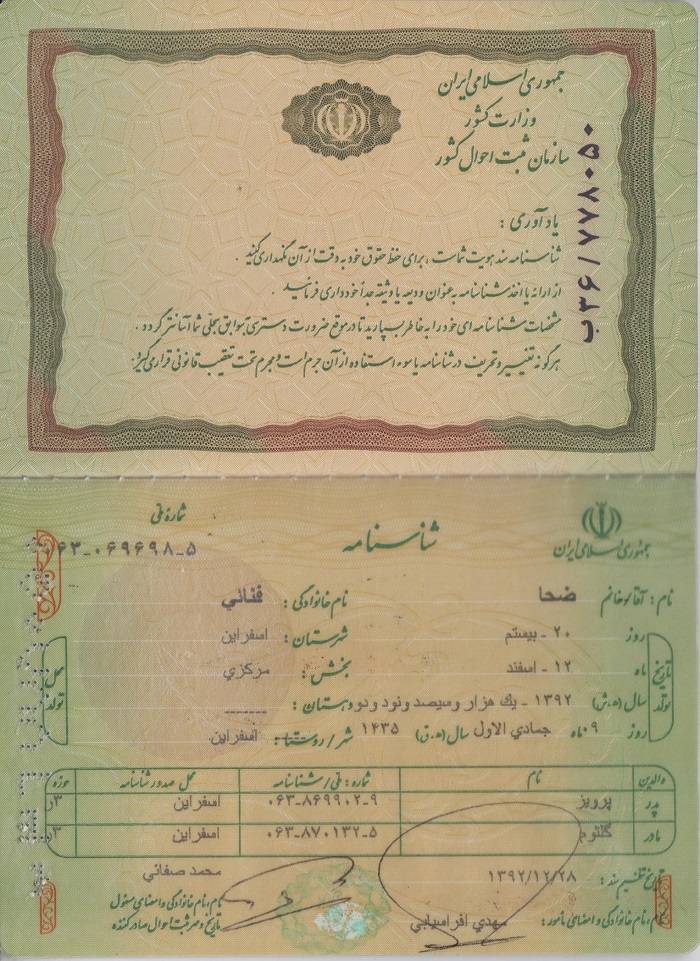 جمهوری اسلامی ایران
وزارت کشور
سازمان ثبت احوال کشور
ب۳۶/۷۷۸۰۵۰
یادآوری :
شناسنامه سند هویت شماست ، برای حفظ حقوق خود به دقت از آن نگهداری کنید .
از ارائه یا اخذ شناسنامه به عنوان ودیعه یا وثیقه جداً خودداری فرمائید .
مشخصات شناسنامه ای خود را به خاطر بسپارید تا در موقع ضرورت دسترسی به سوابق سجلی شما آسانتر گردد .
هرگونه تغییر و تحریف در شناسنامه یا سوء استفاده از آن جرم است و مجرم تحت تعقیب قانونی قرار می گیرد .
جمهوری اسلامی ایران
شناسنامه
شماره ملی
۰۶۳-۰۶۹۶۹۸-۵
نام : آقا / خانم ضحا نام خانوادگی : فنائي
تاریخ تولد
روز ۲۰ - بیستم شهرستان : اسفراین
ماه ۱۲ - اسفند بخش : مرکزي
سال (ه.ش) ۱۳۹۲ - يك هزار وسيصد ونود ودو دهستان : -------
روز ۰۹ ماه جمادي الاول سال (ه.ق) ۱۴۳۵ شهر / روستا : اسفراین
محل تولد
والدین نام شماره : ملی / شناسنامه محل صدور شناسنامه حوزه
پدر پرویز ۰۶۳-۸۶۹۹۰۲-۹ اسفراین ۳ر
مادر گلثوم ۰۶۳-۸۷۰۱۳۲-۵ اسفراین ۳ر
تاریخ تنظیم سند : ۱۳۹۲/۱۲/۲۸ محمد صفائي
نام ، نام خانوادگی و امضای مأمور : مهدي افراسيابي
نام ، نام خانوادگی و امضای مسئول
تاریخ و مهر ثبت احوال صادر کننده